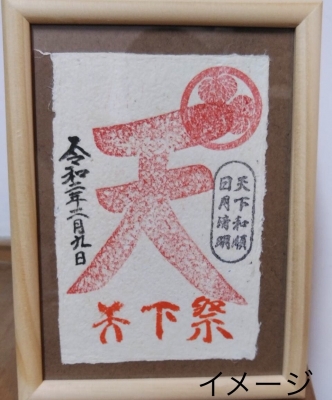 天
令和二年二月九日
天下和順
日月清明
天下祭
イメージ